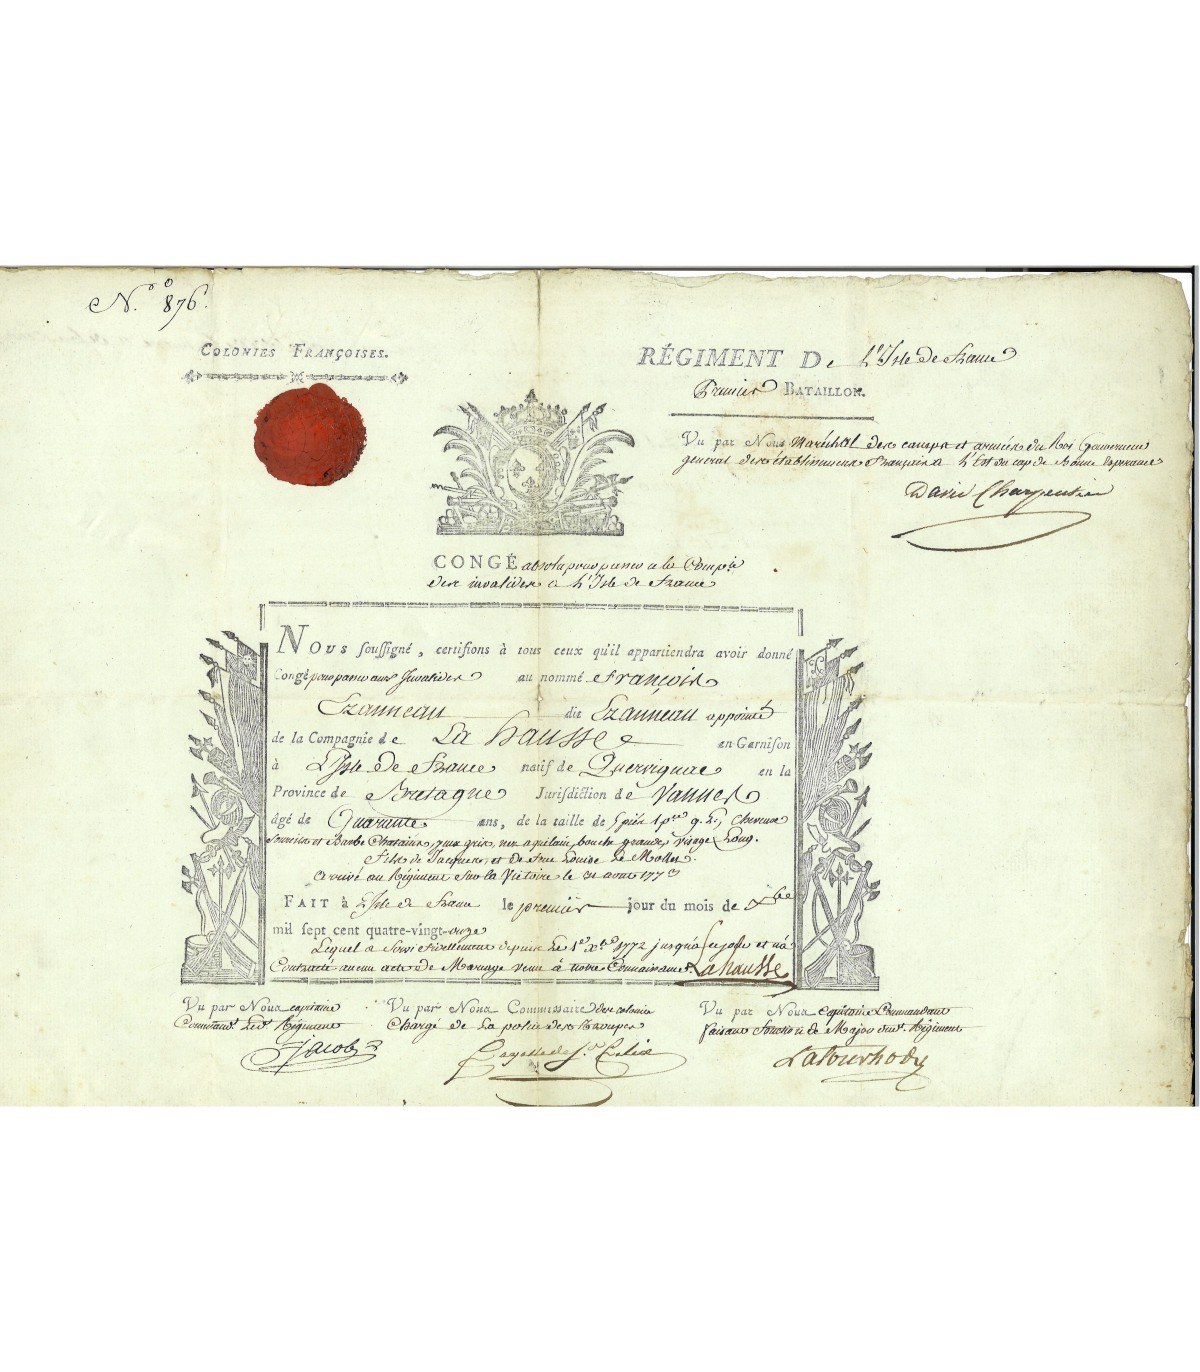 N.° 876.
COLONIES FRANÇOISES.
RÉGIMENT De L'Isle de France
Premier BATAILLON.
Vu par Nous Maréchal des camps et armées du Roi Gouverneur
general des établissemens Français à L'Est du cap de Bonne Esperance
David Charpentier
CONGÉ absolu pour passer a la Comp.ie
des invalides a L'Isle de France
NOUS soussigné, certifions à tous ceux qu'il appartiendra avoir donné
Congé pour passer aux Invalides au nommé François
Ezanneau dit Ezanneau appointé
de la Compagnie de La hausse en Garnison
à L'Isle de France natif de Quervignac en la
Province de Bretagne Jurisdiction de Vannes
âgé de Quarante ans, de la taille de 5 piés 1 pce 9 L.es Cheveux
Sourcils et Barbe Chatains, yeux gris, nez aquilain, bouche grande, visage Long.
Fils de Jacques, et de feue Louise Le Mollet.
Arrivé au Régiment sur la Victoire le 31 aout 1773
FAIT à L'Isle de France le premier jour du mois de Xbre
mil sept cent quatre-vingt-onze
Lequel a Servi fidellement depuis Le 1er Xbre 1772 jusqu'a ce jour et n'a
Contracté aucun acte de Mariage venu à notre Connaissance. Lahausse
Vu par Nous capitaine
Command.t Led.t Régiment
Jacob
Vu par Nous Commissaire des colonies
Chargé de La police des Troupes
Vu par Nous Capitaine Commandant
faisant fonction de Major dud.t Régiment
Latourhody